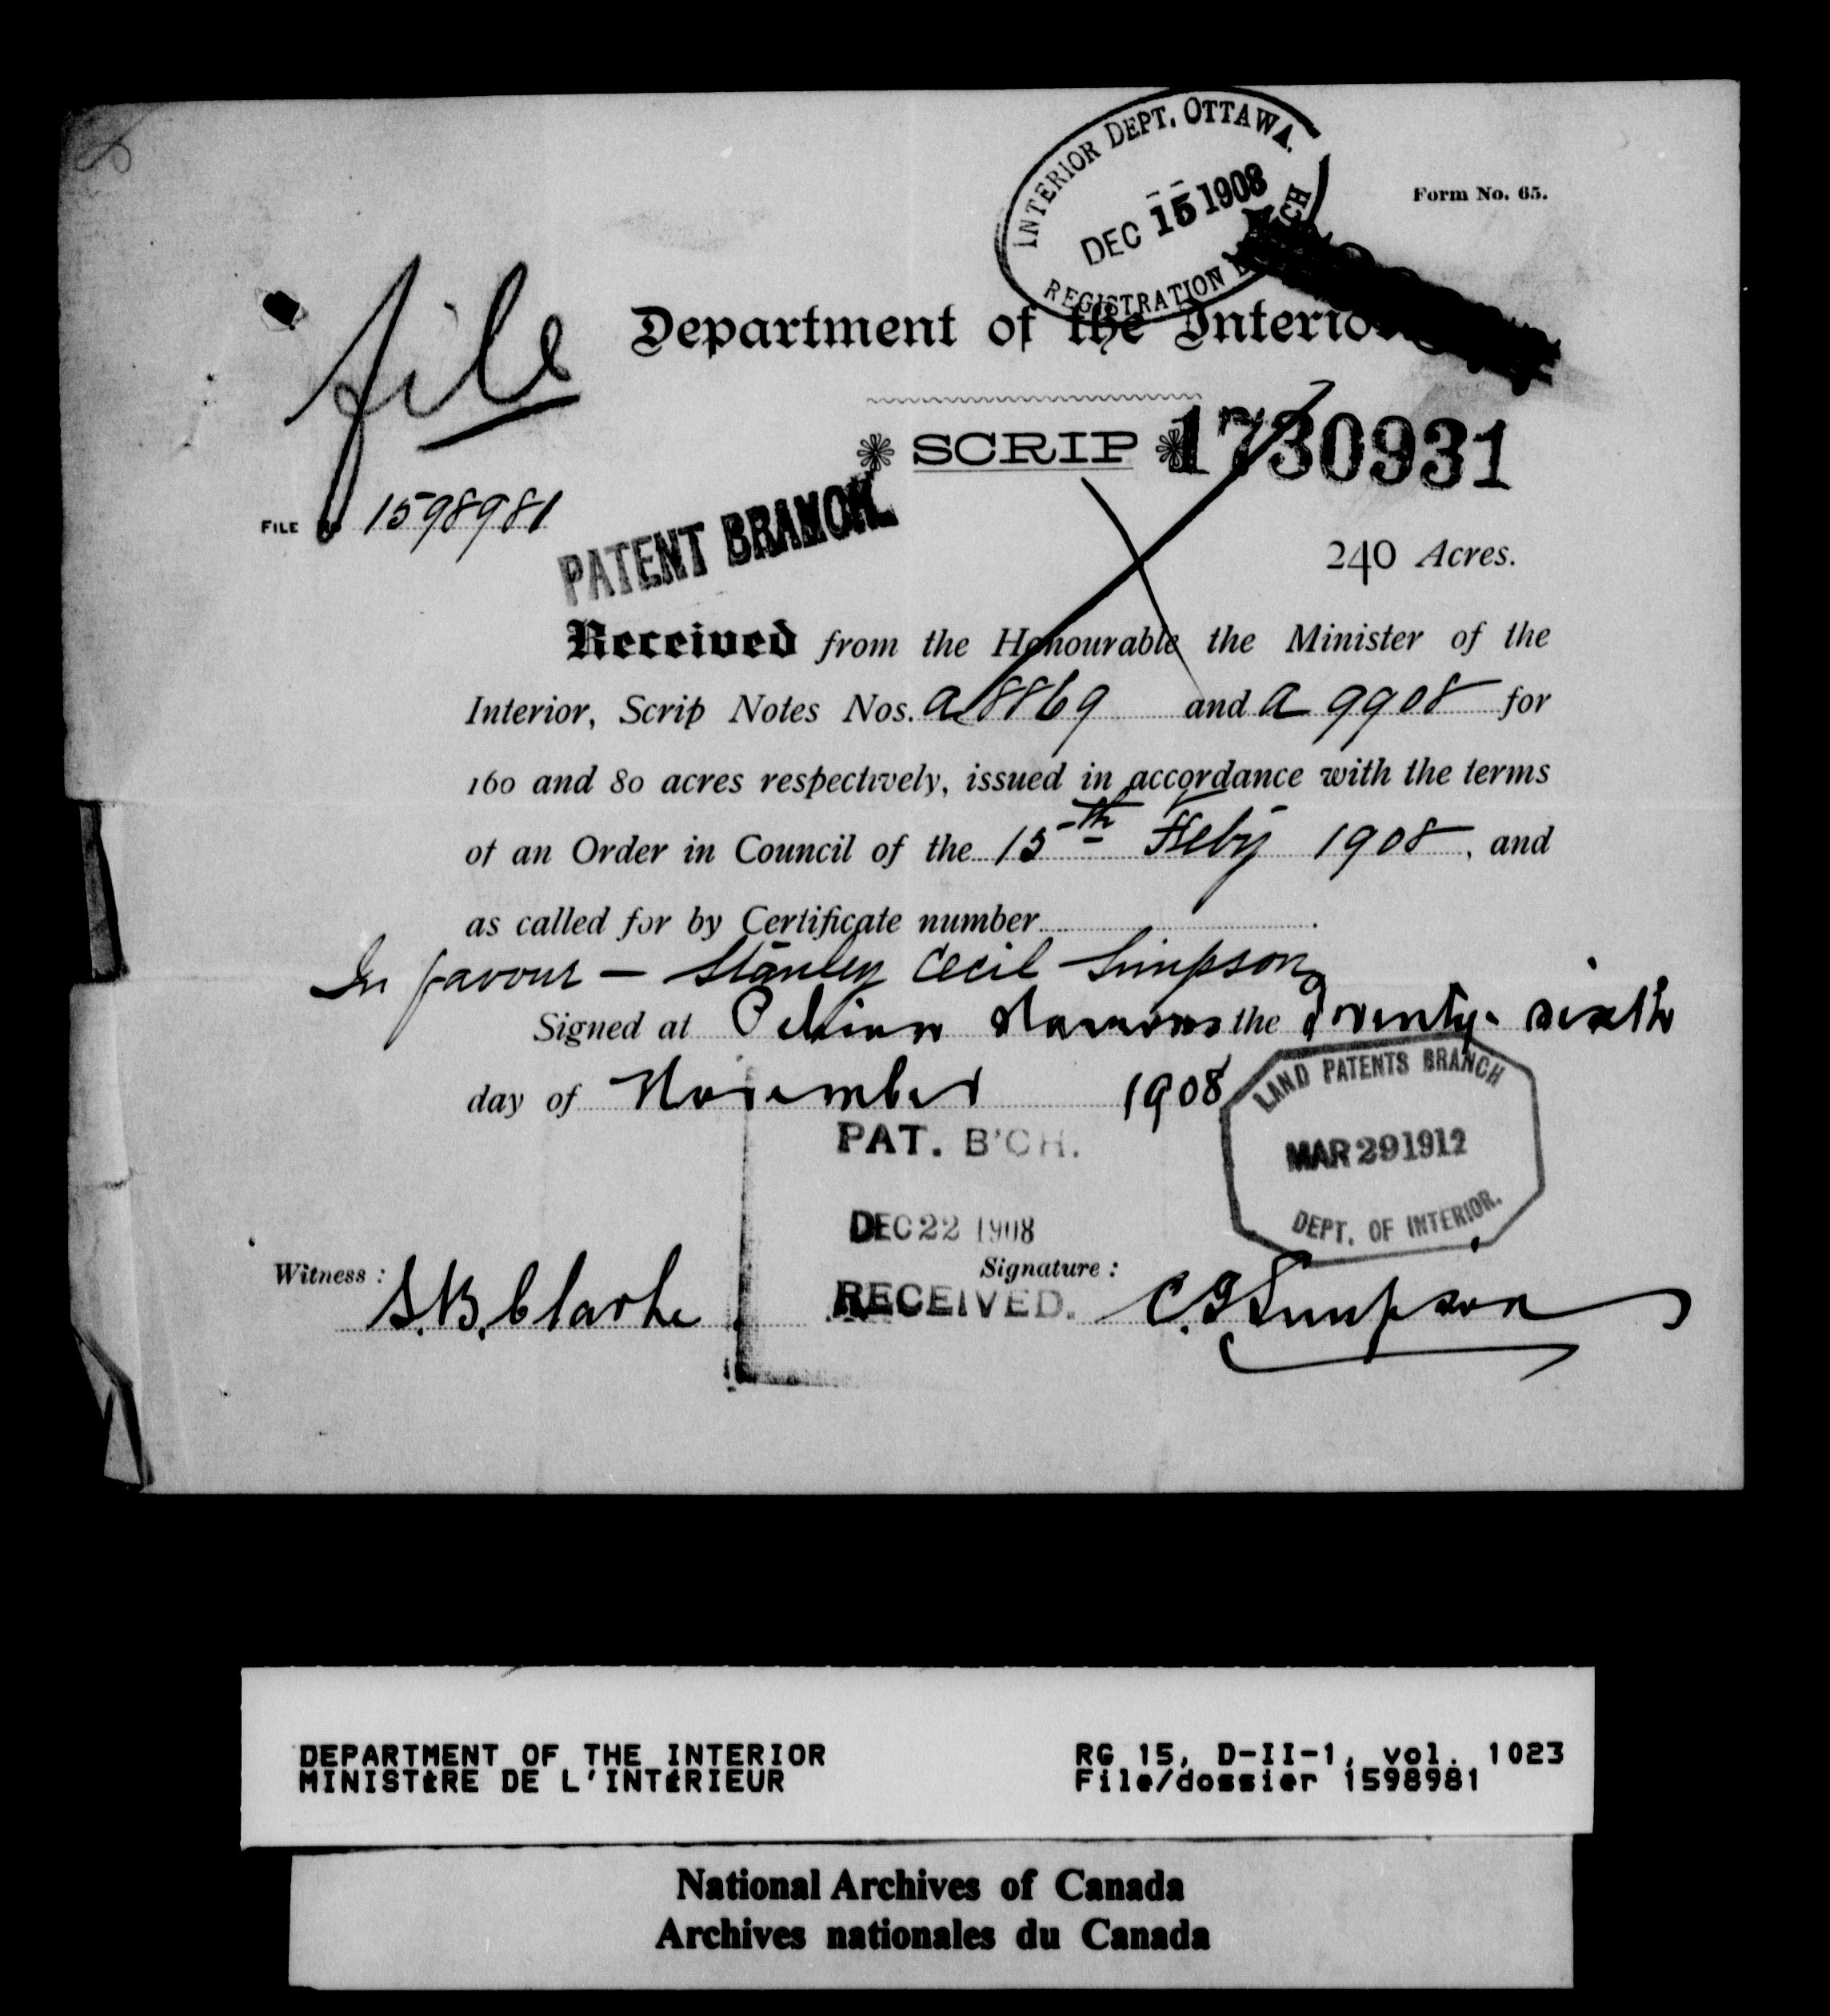 INTERIOR DEPT. OTTAWA.
DEC 15 1908
REGISTRATION CH
Form No. 65.
file
Department of the Interio
SCRIP
1730931
FILE No 1598981
PATENT BRANCH.
240 Acres.
Received from the Honourable the Minister of the
Interior, Scrip Notes Nos. A 8869 and A 9908 for
160 and 80 acres respectively, issued in accordance with the terms
of an Order in Council of the 15th Feby 1908, and
as called for by Certificate number
In favour – Stanley Cecil Simpson
Signed at Pelican Narrows the Twenty-sixth
day of November 1908
LAND PATENTS BRANCH
MAR 29 1912
DEPT. OF INTERIOR.
PAT. B'CH.
DEC 22 1908
RECEIVED.
Witness : S.B. Clarke
Signature : Simpson
DEPARTMENT OF THE INTERIOR RG 15, D-II-1, vol. 1023
MINISTÈRE DE L'INTÉRIEUR File/dossier 1598981
National Archives of Canada
Archives nationales du Canada